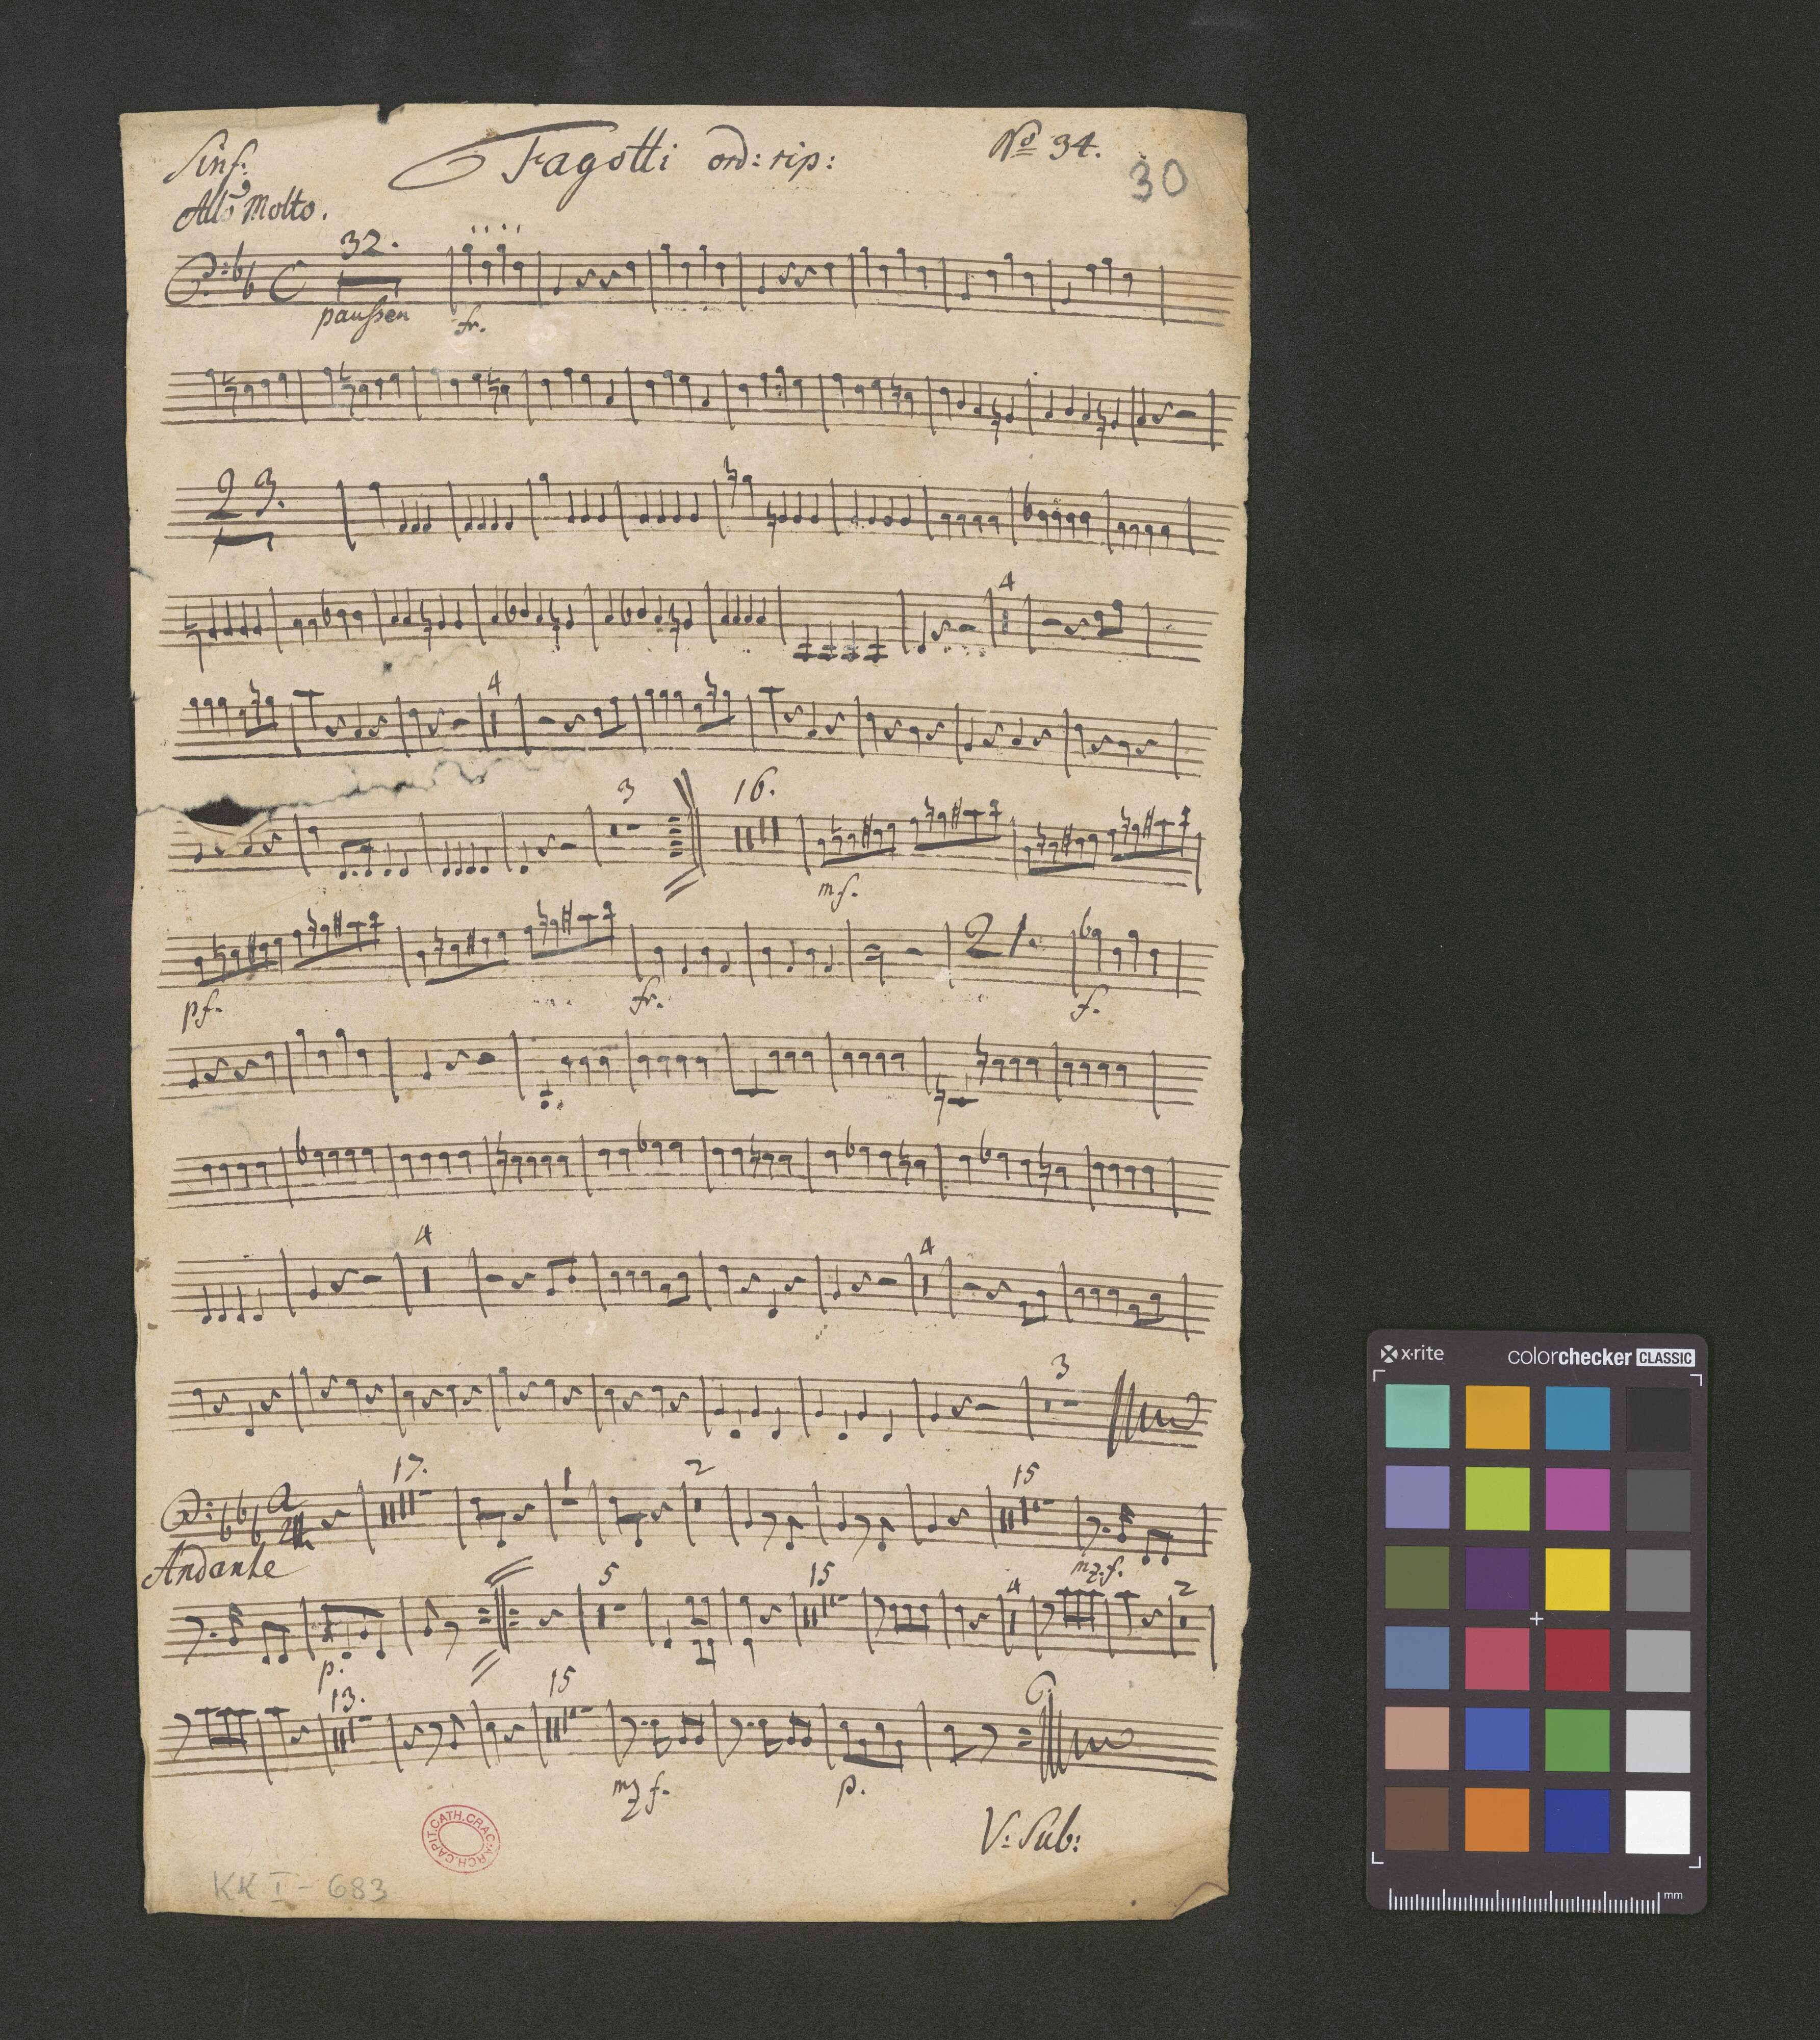 Sinf: Fagotti ord: rip: No 34. 30
Allo Molto.
32.
paussen fr.
23.
4
4 4
3 16.
mf.
21.
pf. fr. f.
4 4
3
17. 1 2 15
Andante mz.f.
5 15 4 2
p.
13. 15
mz f. p.
V: Sub:
ARCH. CAPIT. CATH. CRAC.
KK I - 683
x-rite colorchecker CLASSIC
mm